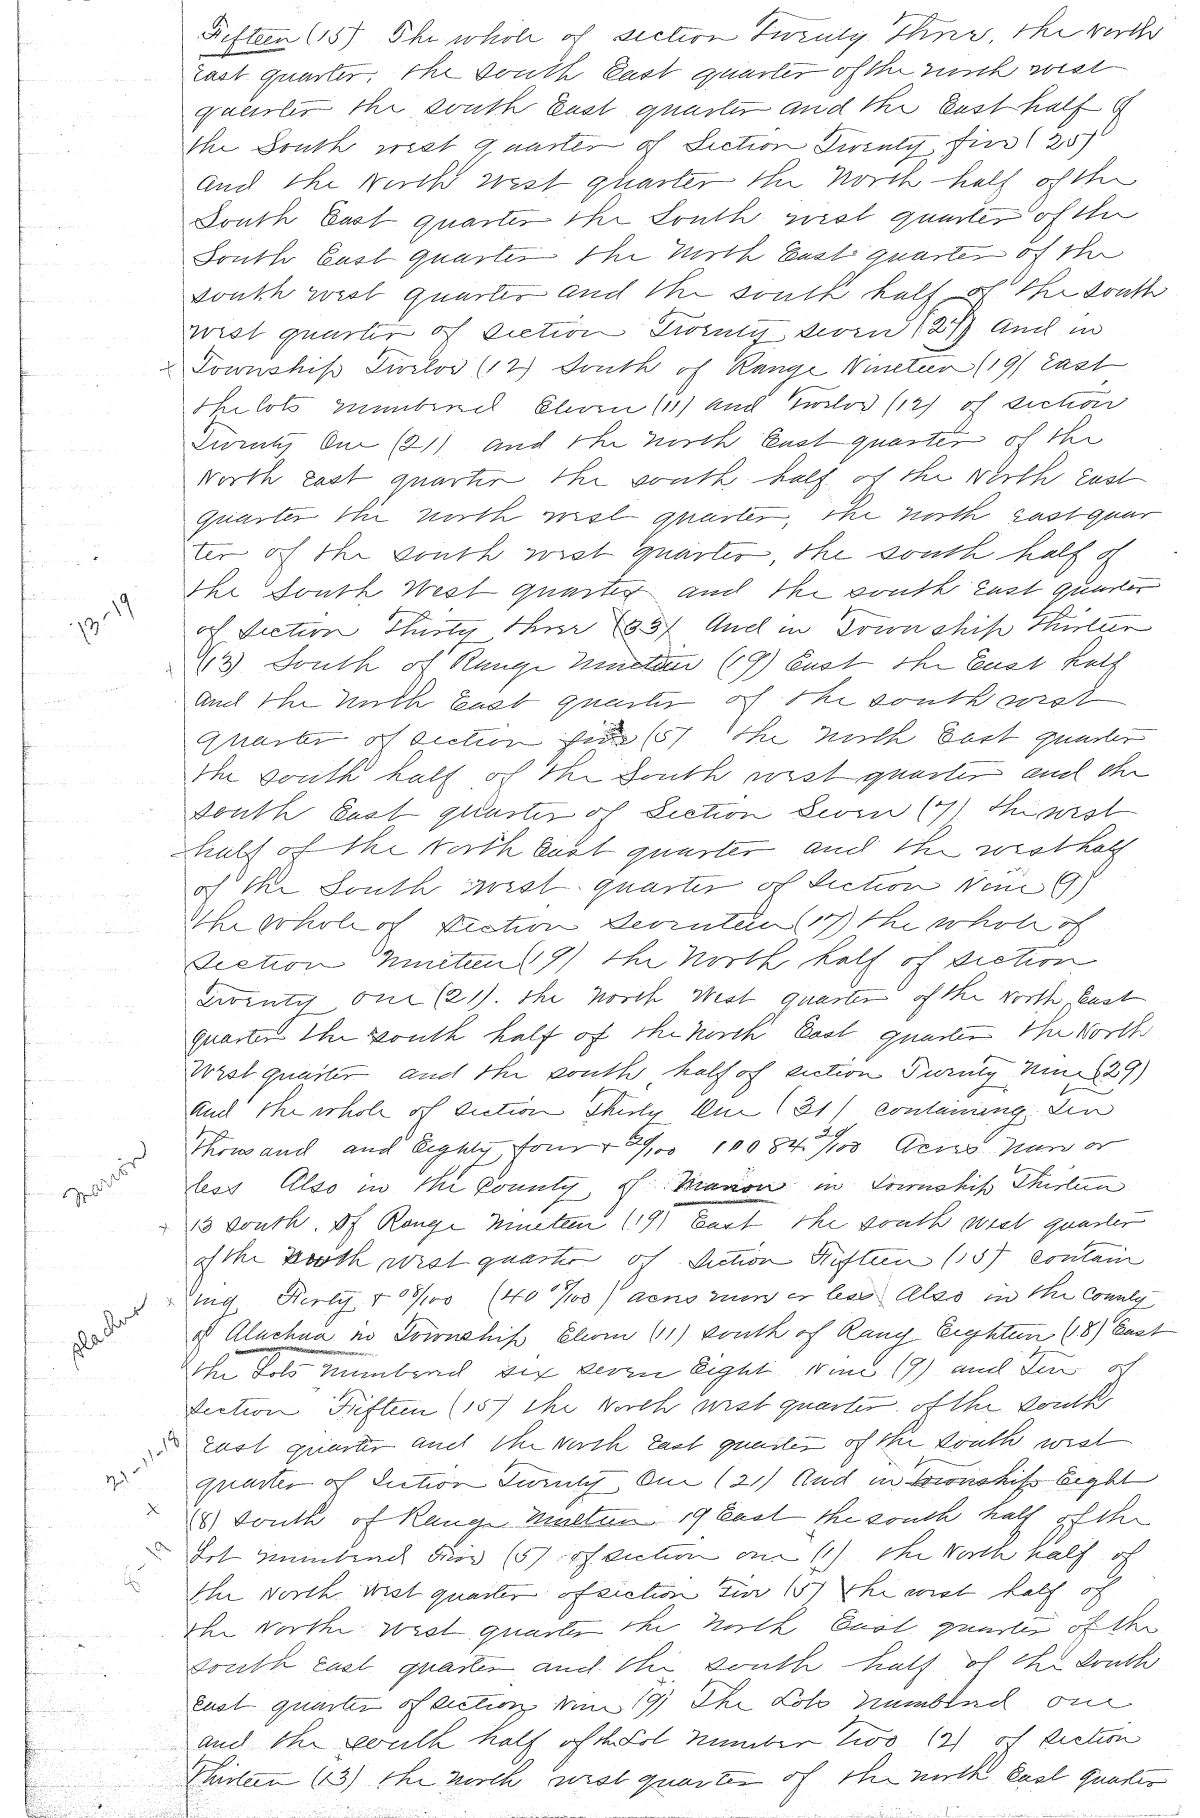 Fifteen (15) The whole of section Twenty Three, the North
East quarter, the South East quarter of the north west
quarter the south East quarter and the East half of
the South west quarter of Section Twenty five (25)
and the North West quarter the North half of the
South East quarter the South west quarter of the
South East quarter the North East quarter of the
south west quarter and the south half of the south
west quarter of section Twenty seven (27) and in
Township Twelve (12) South of Range Nineteen (19) East
the lots numbered Eleven (11) and Twelve (12) of section
Twenty One (21) and the north East quarter of the
North East quarter the south half of the North East
quarter the north west quarter, the north east quar
ter of the south west quarter, the south half of
the South West quarter and the south East quarter
13-19
of Section Thirty three (33) And in Township Thirteen
(13) South of Range Nineteen (19) East the East half
and the North East quarter of the south west
quarter of section five (5) the North East quarter
the south half of the South west quarter and the
south East quarter of Section Seven (7) the west
half of the North East quarter and the west half
of the South west quarter of Section Nine (9)
the whole of Section Seventeen (17) the whole of
Section Nineteen (19) the North half of section
Twenty one (21). the North West quarter of the North East
quarter the south half of the North East quarter the North
West quarter and the south half of section Twenty Nine (29)
and the whole of section Thirty One (31) containing Ten
Thousand and Eighty four + 29/100 10084 29/100 Acres more or
Marion
less Also in the County of Marion in Township Thirteen
+ 13 south. Of Range Nineteen (19) East the south west quarter
of the North west quarter of Section Fifteen (15) contain
ing Forty + 08/100 (40 08/100) acres more or less Also in the County
Alachua
of Alachua in Township Eleven (11) south of Range Eighteen (18) East
the Lots numbered six seven Eight Nine (9) and Ten of
Section Fifteen (15) the North west quarter of the South
21-11-18
East quarter and the North East quarter of the South west
quarter of Section Twenty One (21) And in Township Eight
x
(8) South of Range Nineteen 19 East the south half of the
8-19
Lot numbered Five (5) of section one (1) the North half of
the North West quarter of section Five (5) the west half of
the North west quarter the North East quarter of the
south East quarter and the south half of the South
East quarter of section Nine (9) The Lots numbered one
and the south half of the Lot Number Two (2) of section
Thirteen (13) the north west quarter of the north East quarter